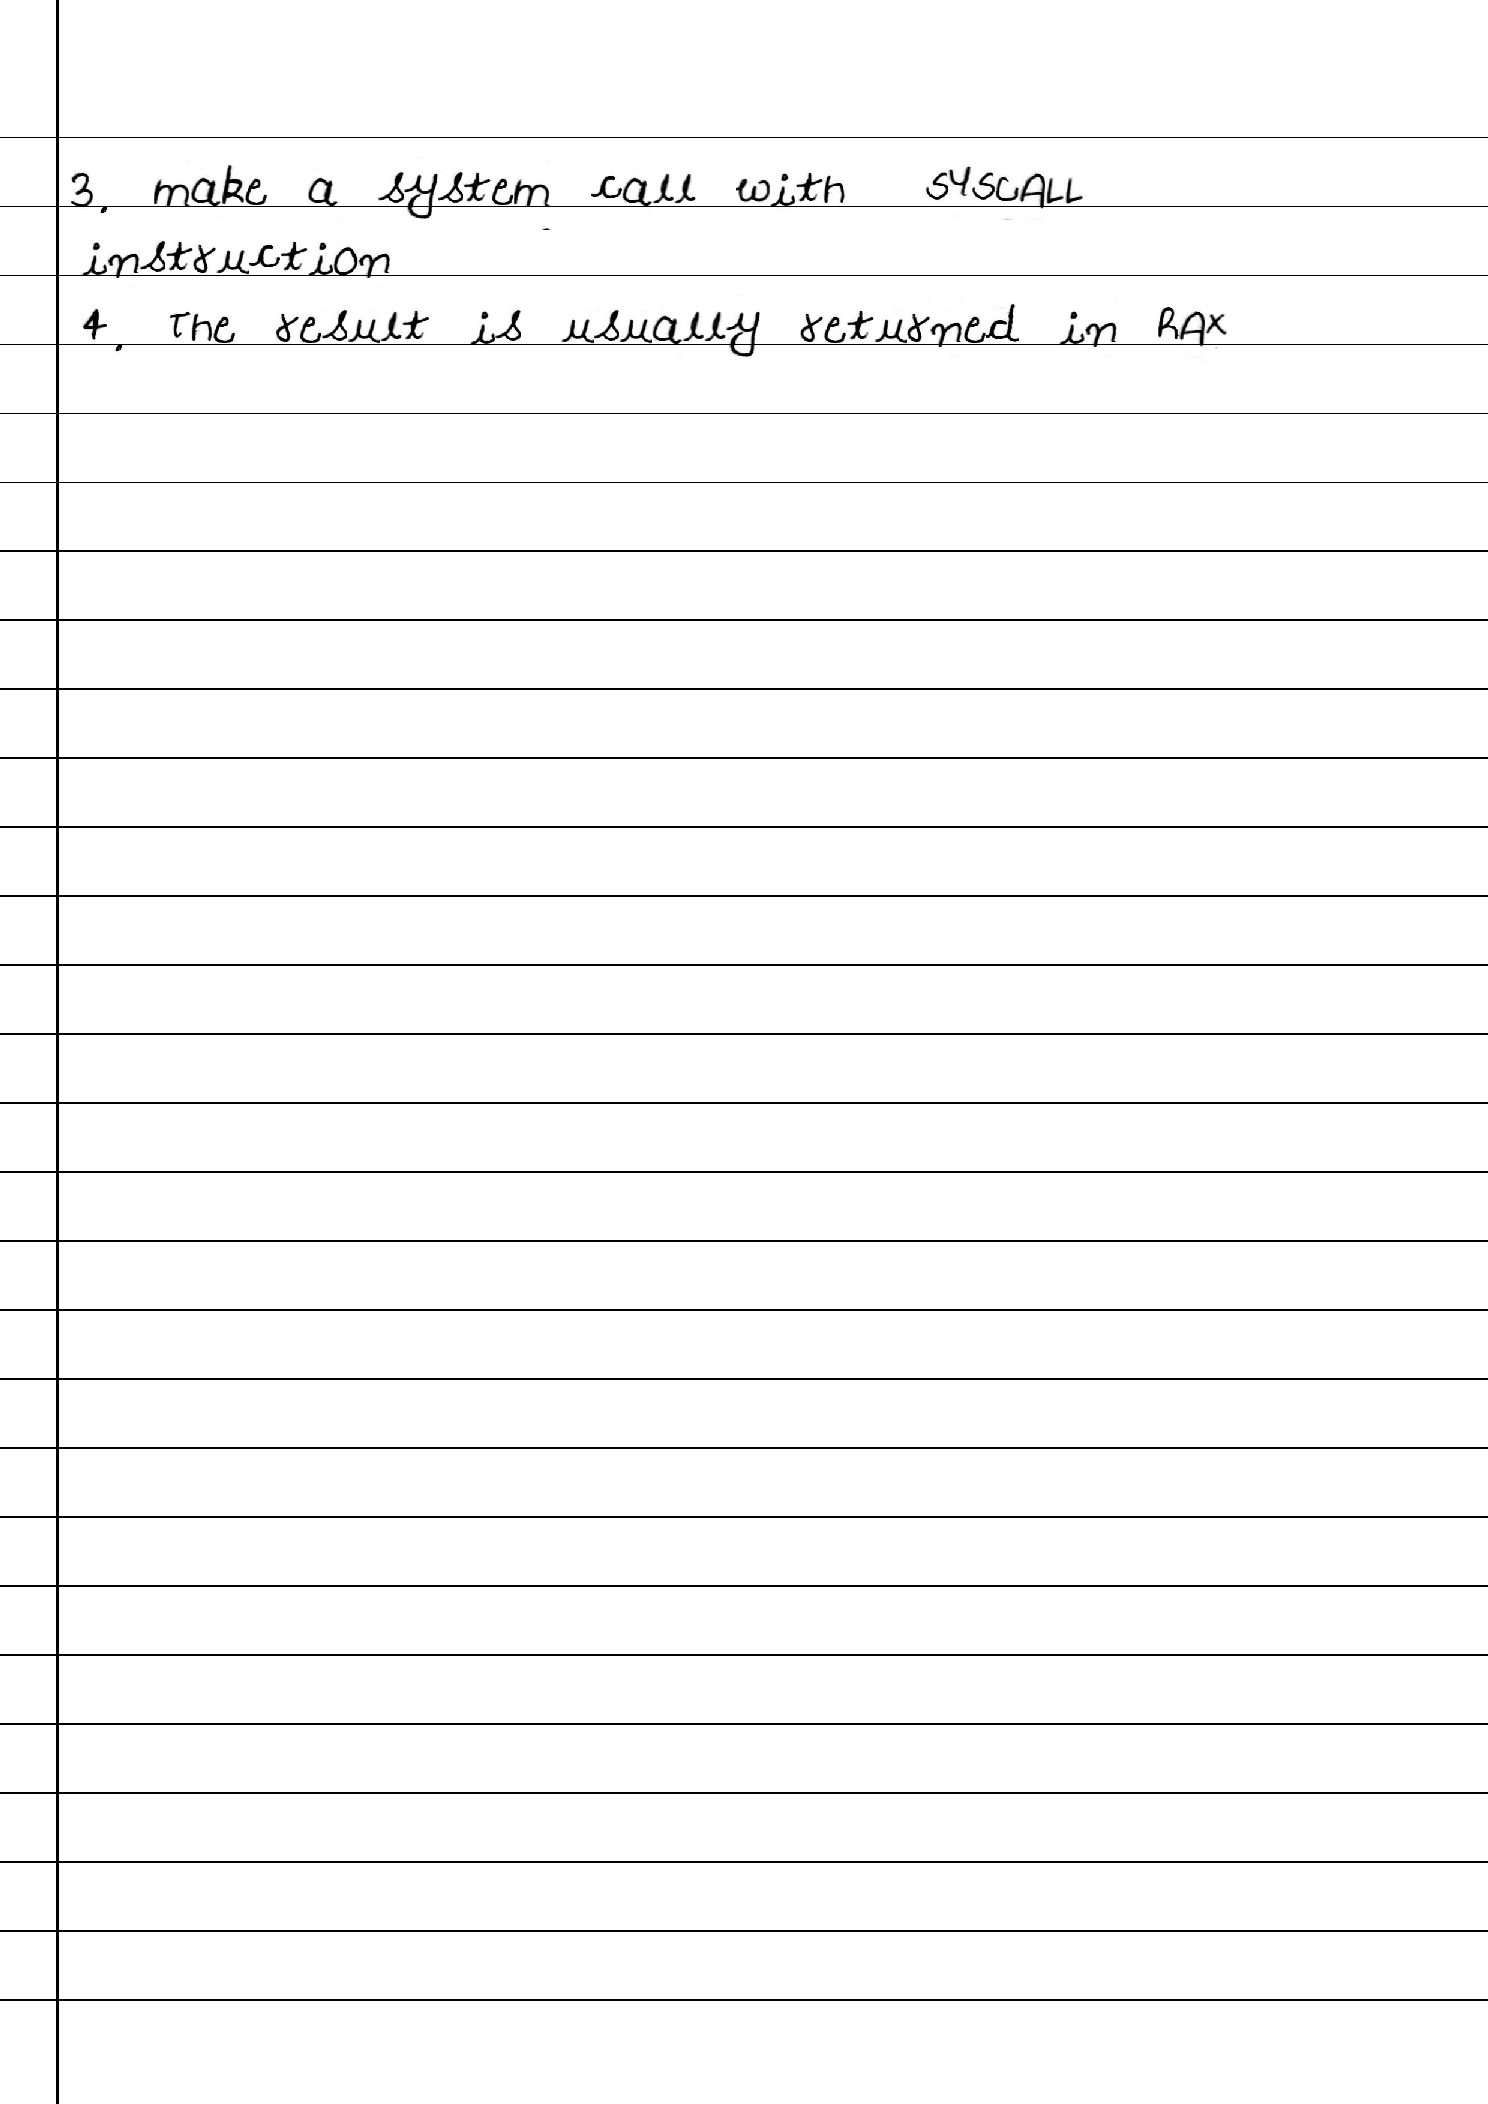 3. make a system call with SYSCALL
instruction
4. The result is usually returned in RAX